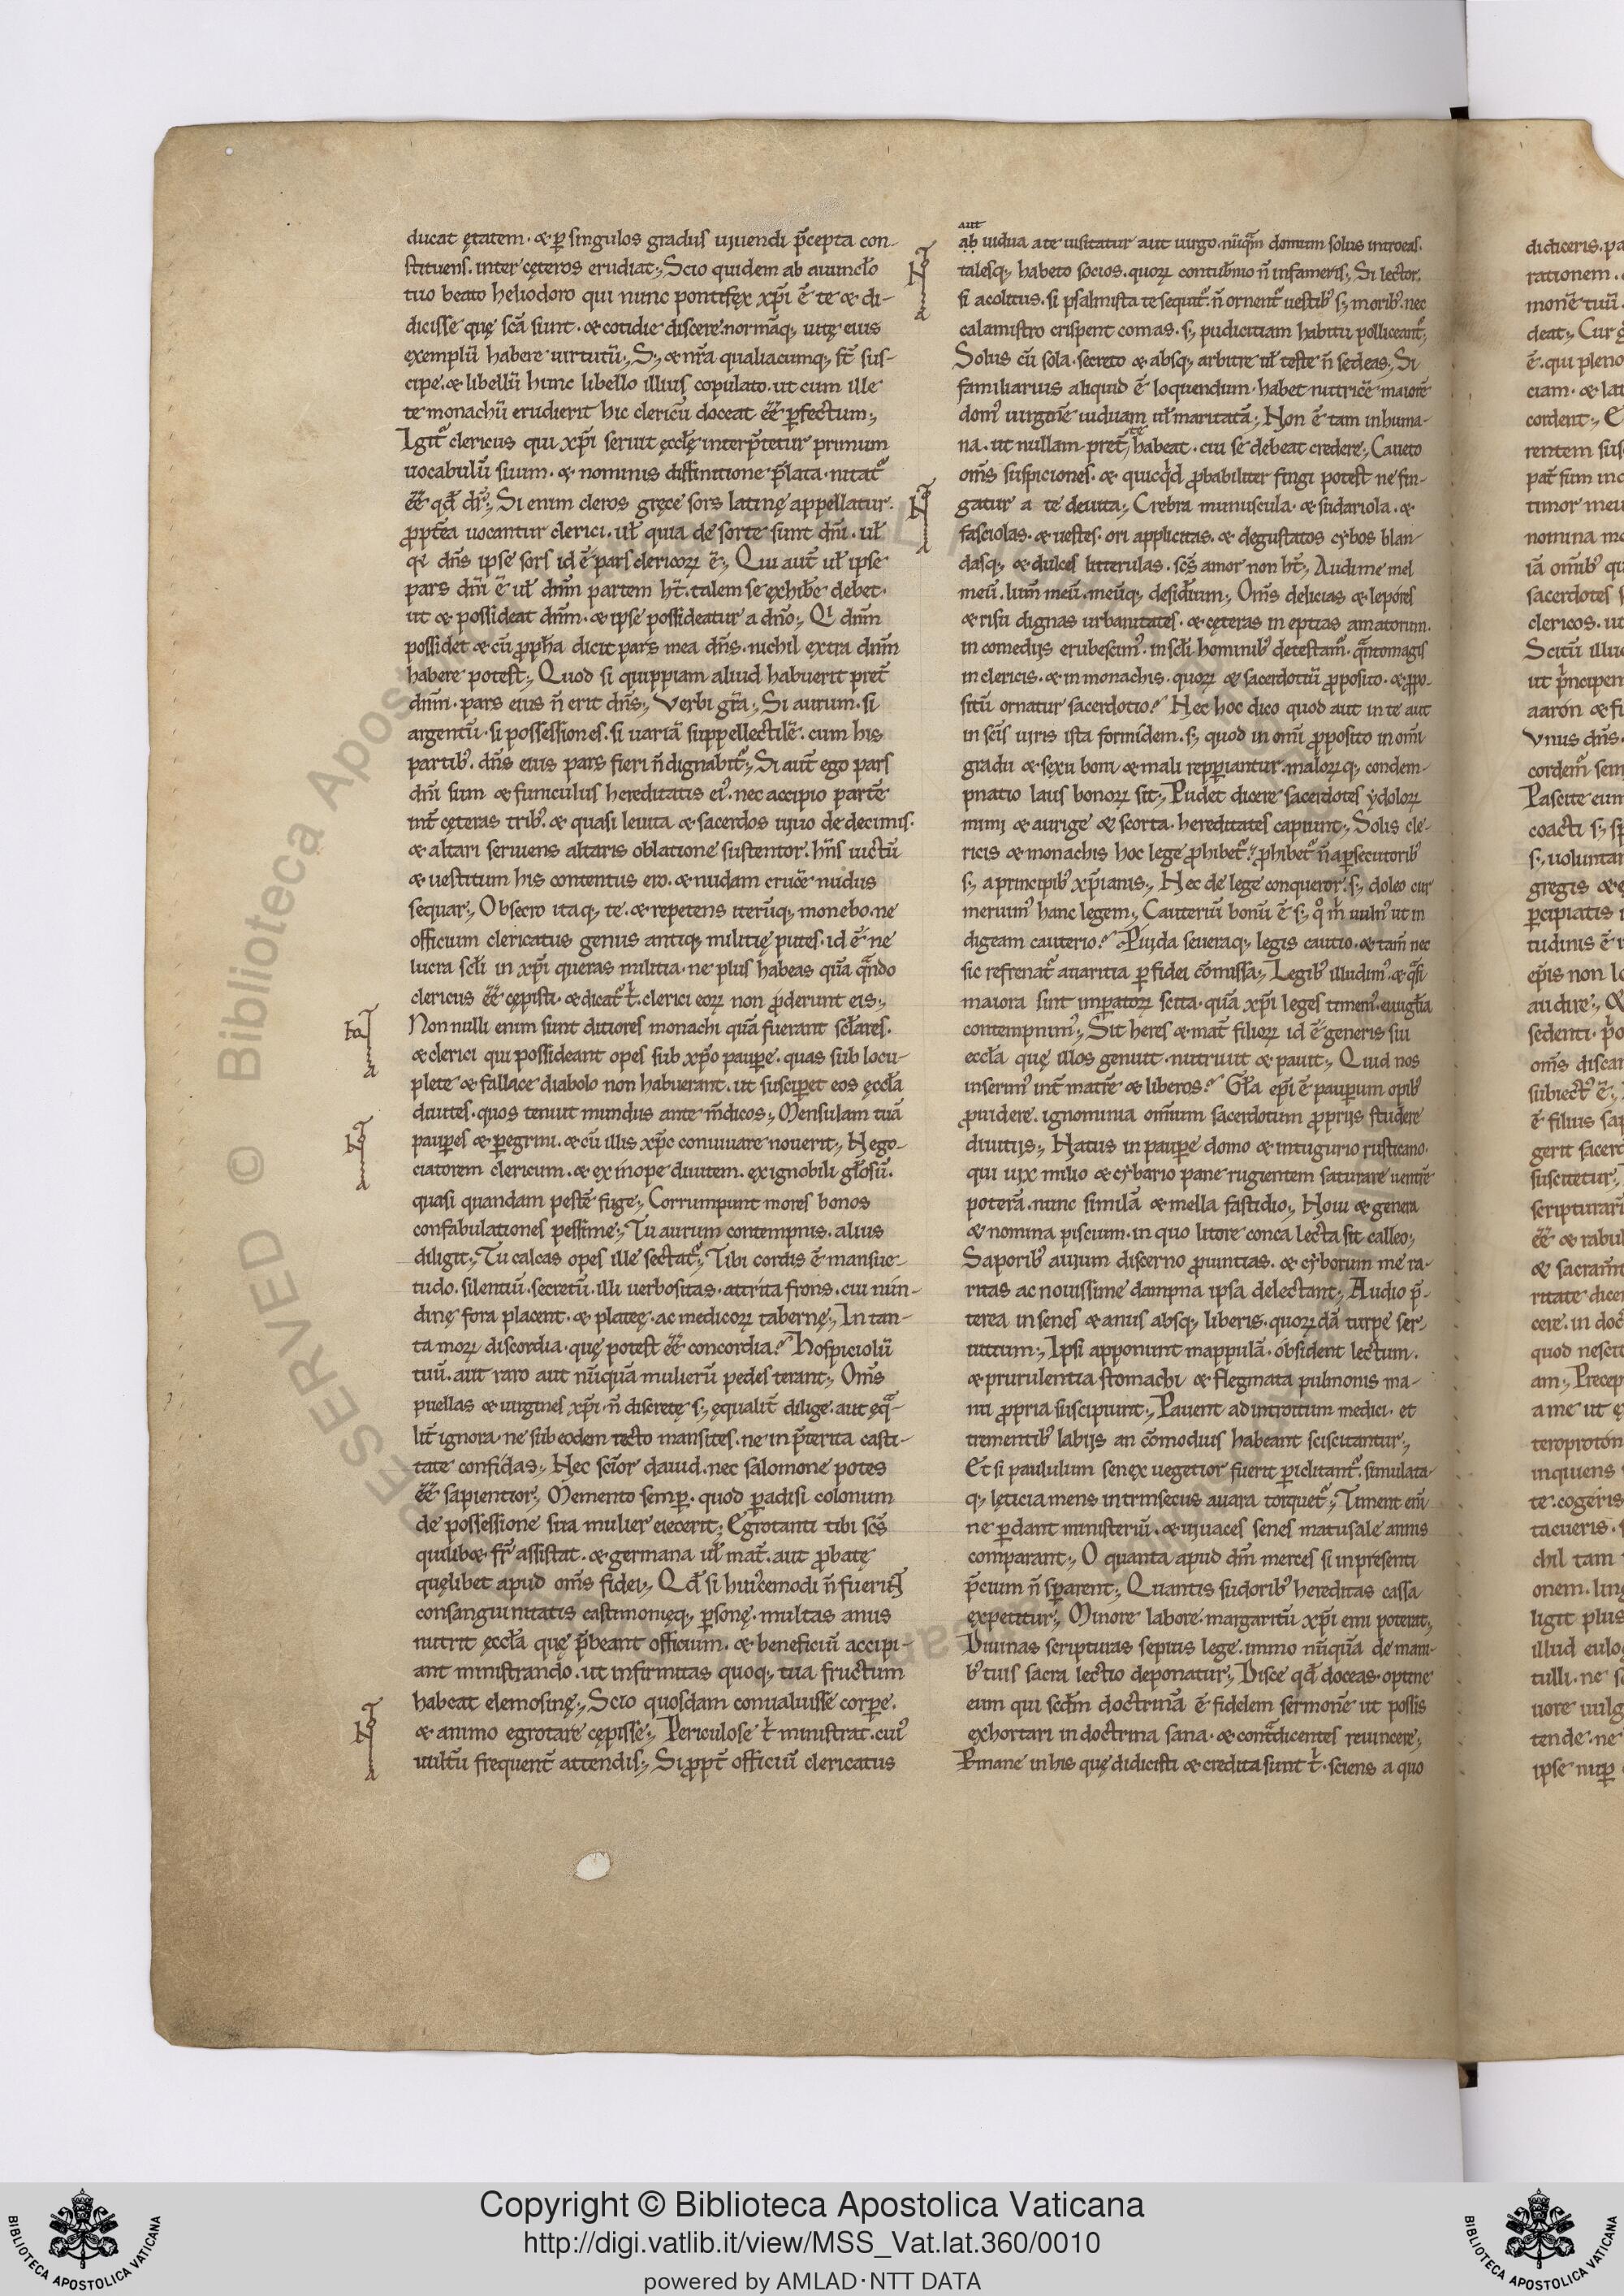 ducat ętatem · & ꝑ singulos gradus uiuendi p̄cepta con-
stituens. inter cęteros erudiat; Scio quidem ab auunclo
tuo beato heliodoro qui nunc pontifęx xp̄i ē te & di-
dicisse quę sc̄a sunt · & cotidie discere normāq; uitę eius
exemplū habere uirtutū; S; & nr̄a qualiacumq; st̄ sus-
cipe · & libellū hunc libello illius copulato · ut cum ille
te monachū erudierit hic clericū doceat ēē ꝑfectum;
Igit̄ clericus qui xp̄i seruit ęccłę interp̄tetur primum
uocabulū suum · & nominis diffinitione p̄lata · nitat̄
ēē qđ dr̄; Si enim cleros gręce sors latinę appellatur.
ꝓptēa uocantur clerici · uł quia de sorte sunt dn̄i · uł
qi dn̄s ipse sors id ē pars clericoꝝ ē; Qui aut̄ uł ipse
pars dn̄i ē uł dnm̄ partem ht̄ · talem se ęxhibe debet ·
ut & possideat dnm̄ · & ipse possideatur a dn̄o; Qi dnm̄
possidet & cū ꝓpha dicit pars mea dn̄s · nichil ęxtra dnm̄
habere potest; Quod si quippiam aliud habuerit pret̄
dnm̄ · pars eius n̄ erit dn̄s; Verbi gr̄a; Si aurum · si
argentū · si possessiones · si uariā suppellectilē · cum his
partib; dn̄s eius pars fieri n̄ dignabit̄; Si aut̄ ego pars
dn̄i sum & funiculus hereditatis ei9 · nec accipio partē
int̄ cęteras trib9 · & quasi leuita & sacerdos uiuo de decimis ·
& altari seruiens altaris oblatione sustentor · hn̄s uictū
& uestitum his contentus ero · & nudam crucē nudus
sequar; Obsecro itaq; te · & repetens iterūq; monebo · ne
officium clericatus genus antiq; militię putes · id ē ne
lucra scłi in xp̄i queras militia · ne plus habeas quā qn̄do
clericus ēē cępisti · & dicat̄ t̄ · clerici eoꝝ non ꝓderunt eis;
Non nulli enim sunt ditiores monachi quā fuerant scłares ·
& clerici qui possideant opes sub xp̄o pauꝑe · quas sub locu-
plete & fallace diabolo non habuerant · ut susciꝑet eos ęccła
diuites · quos tenuit mundus ante m̄dicos; Mensulam tuā
pauꝑes & ꝑegrini · & cū illis xp̄c conuiuare nouerit; Nego-
ciatorem clericum · & ęx inope diuitem · ęx ignobili głosū ·
quasi quandam pestē fuge; Corrumpunt mores bonos
confabulationes pessime; Tu aurum contempnis · alius
diligit; Tu calcas opes ille sectat̄; Tibi cordis ē mansue-
tudo · silentiū · secretū · illi uerbositas · attrita frons · cui nun-
dinę fora placent · & plateę · ac medicoꝝ tabernę; In tan-
ta moꝝ discordia · quę potest ēē concordia? Hospiciolū
tuū · aut raro aut nūquā mulierū pedes terant; Om̄s
puellas & uirgines xp̄i · n̄ discrete s; ęqualit̄ dilige · aut ęq̄-
lit̄ ignora · ne sub eodem tecto mansites · ne in p̄terita casti-
tate confidas; Nec sc̄ior dauid · nec salomone potes
ēē sapientior; Memento semꝑ · quod ꝑadisi colonum
de possessione sua mulier eiecerit; Egrotanti tibi sc̄s
quilib& fr̄ assistat · & germana uł mat̄ · aut ꝓbatę
quęlibet apud om̄s fidei; Qđ si huicemodi n̄ fuerint
consanguinitatis castimonięq; ꝑsonę · multas anus
nutrit ęccła quę p̄beant officium · & beneficiū accipi-
ant ministrando · ut infirmitas quoq; tua fructum
habeat elemosinę; Scio quosdam conualuisse corꝑe ·
& animo egrotare cępisse; Periculose t̄ ministrat · cui9
uultū frequent̄ attendis; Si ꝓpt̄ officiū clericatus
aut
ab uidua a te uisitatur aut uirgo · nūq̄m domum solus introeas ·
talesq; habeto socios · quoꝝ contubn̄io n̄ infameris; Si lector ·
si acolitus · si psalmista te sequit̄ · n̄ ornent̄ uestib9 s; morib9 · nec
calamistro crispent comas · s; pudicitiam habitu polliceant̄;
Solus cū sola · secreto & absq; arbitre uł teste n̄ sedeas; Si
familiarius aliquid ē loquendum · habet nutricē maiorē
dom9 uirginē uiduam uł maritatā; Non ē tam inhuma-
na · ut nullam pret̄ te habeat · cui se debeat credere; Caueto
om̄s suspiciones · & quicqđ ꝓbabiliter fingi potest ne fin-
gatur a te deuita; Crebra munuscula · & sudariola · &
fasciolas · & uestes · ori applicitas · & degustatos cybos blan-
dasq; & dulces litterulas · sc̄s amor non ht̄; Audi me mel
meū · lum̄ meū · meūq; desidium; Om̄s delicias & lepores
& risu dignas urbanitates · & cęteras ineptias amatorum ·
in comedijs erubescim9 · in scłi hominib9 detestam̄ · q̄ntomagis
in clericis · & in monachis · quoꝝ & sacerdotiū ꝓposito · & ꝓpo-
sitū ornatur sacerdotio? Nec hoc dico quod aut in te aut
in sc̄is uiris ista formidem · s; quod in om̄i ꝓposito in om̄i
gradu & sęxu boni & mali repꝑiantur · maloꝝq; condem-
pnatio laus bonoꝝ sit; Pudet dicere sacerdotes ydoloꝝ
mimi & aurige & scorta · hereditates capiunt; Solis cle-
ricis & monachis hoc lege ꝓhibet̄; ꝓhibet̄ n̄ a ꝑsecutorib9
s; a principib9 xp̄ianis; Nec de lege conqueror · s; doleo cur
meruim9 hanc legem; Cauteriū bonū ē s; qo m uuln9 ut in
digeam cauterio? Puida seueraq; legis cautio · & tam̄ nec
sic refrenat̄ auaritia ꝑ fidei cōmissa; Legib9 illudim9 · & q̄si
maiora sint imꝑatoꝝ scita · quā xp̄i leges timem9 · euuigłia
contempnim9; Sit heres & mat̄ filioꝝ id ē generis sui
eccła quę illos genuit · nutriuit & pauit; Quid nos
inserim9 int̄ matrē & liberos? Gła ep̄i ē pauꝑum opib9
ꝓuidere · ignominia omīum sacerdotum ꝓprijs studere
diuitijs; Natus in pauꝑe domo & in tugurio rusticano ·
qui uix milio & cybario pane rugientem saturare uentrē
poterā · nunc similā & mella fastidio; Noui & genera
& nomina piscium · in quo litore conca lecta sit calleo;
Saporib9 auium discerno ꝓuintias · & cyborum me ra-
ritas ac nouissime dampna ipsa delectant; Audio p̄-
terea in senes & anus absq; liberis · quoꝝdā turpe ser-
uitium; Ipsi apponunt mappulā · obsident lectum ·
& prurulentia stomachi & flegmata pulmonis ma-
nu ꝓpria suscipiunt; Pauent ad introitum medici · et
trementib9 labijs an cōmodius habeant sciscitantur;
Et si paululum senęx uegetior fuerit ꝑiclitant̄ · simulata-
q; lęticia mens intrinsecus auara torquet̄; Timent eni
ne ꝑdant ministeriū · & uiuaces senes matusale annis
comparant; O quanta apud dm̄ merces si in presenti
p̄cium n̄ sꝑarent; Quantis sudorib9 hereditas cassa
ęxpetitur; Minore labore · margaritū xp̄i emi poterit;
Diuinas scripturas sepius lege · immo nūquā de mani-
b9 tuis sacra lectio deponatur; Disce qđ doceas · optine
eum qui scdm̄ doctrinā ē fidelem sermonē ut possis
ęxhortari in doctrina sana · & cont̄dicentes reuincere;
Pmane in his quę didicisti & credita sunt t̄ · sciens a quo
didiceris · pa
rationem ·
monē tuū ·
deat; Cur g
ē · qui pleno
ciam · & lat
cordent; C
rentem sus
pat̄ sum inq
timor meu
nomina mo
iā omīb9 qu
sacerdotes s
clericos · ut
Scitū illud
ut p̄ncipem
aaron & fi
Vnus dn̄s ·
cordem̄ sem
Pascite eum
coacti s; sp
s; uoluntar
gregis & ę
ꝑcipiatis i
tudinis ē r
ep̄is non lo
audire; Q
sedenti · p̄o
om̄s discan
subiect9 ē;
ē filius sap
gerit sacerd
suscitetur;
scripturarū
ēē & rabul
& sacram̄t
ritate dicer
cere · in doc
quod nescit
am; Precep
a me ut ę
teroproton
inquiens
te · cogeris
tacueris · s
chil tam
onem · ling
ligit plus
illud eulog
tulli · ne s
uore uulg
tende · ne
ipse nuꝑ
RESERVED © Biblioteca Apostolica
Copyright © Biblioteca Apostolica Vaticana
http://digi.vatlib.it/view/MSS_Vat.lat.360/0010
powered by AMLAD·NTT DATA
BIBLIOTECA APOSTOLICA VATICANA
BIBLIOTECA APOSTOLICA VATICANA